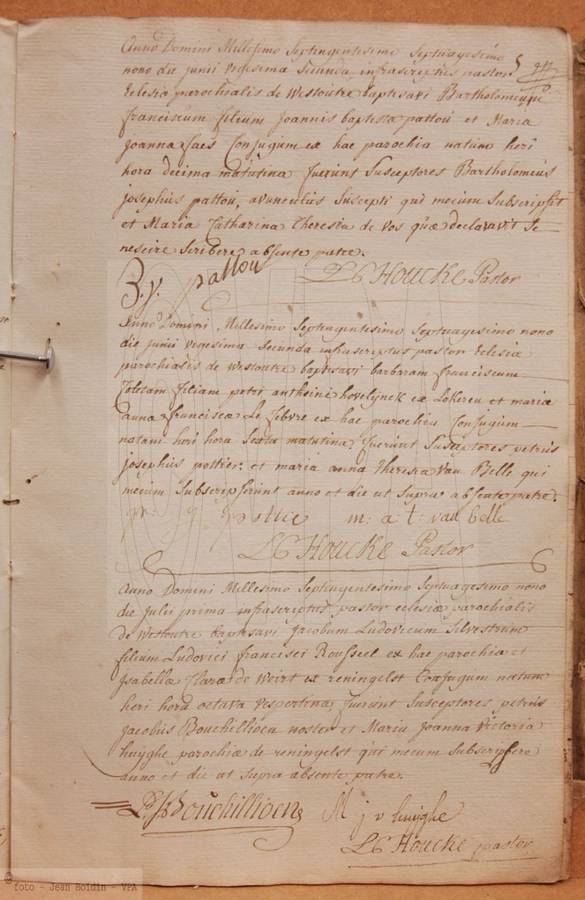 Anno Domini Millesimo Septingentesimo Septuagesimo
nono die junii vigesima secunda infrascriptus pastor
Eclesiæ parochialis de Westoutre baptisavi Bartholomeum
franciscum filium joannis baptistæ pattou et Maria
joanna faes Conjugum ex hac parochia natum heri
hora decima matutina fuerunt Susceptores Bartholomeus
josephus pattou, avunculus Suscepti qui mecum Subscripsit
et Maria Catharina Theresia de vos quæ declaravit se
nescire scribere absente patre.
pattou
LC Houcke Pastor
Anno Domini Millesimo Septingentesimo Septuagesimo nono
die junii vigesima secunda infrascriptus pastor Eclesiæ
parochialis de westoutre baptisavi barbaram franciscam
filiam petri anthoini hovelynck ex Lokeren et maria
anna francisca Le febvre ex hac parochia Conjugum
natam heri hora Sexta matutina. fuerunt Susceptores petrus
josephus pottier. et maria anna Theresia Van Belle qui
mecum Subscripserunt anno et die ut Supra absente patre.
m: a t: van belle
LC Houcke Pastor
Anno Domini Millesimo Septingentesimo Septuagesimo nono
die Julii prima infrascriptus pastor eclesiæ parochialis
de Westoutre baptisavi Jacobum Ludovicum Silvestrum
filium Ludovici francisci Rousseel ex hac parochia et
Isabella Clara de Weirt ex reningelst Conjugum natum
heri hora octava vespertina fuerunt Susceptores petrus
Jacobus Bouchillioen noster et Maria Joanna Victoria
huyghe parochiæ de reningelst qui mecum Subscripsere
anno et die ut supra absente patre.
Bouchillioen M j v huyghe
LC Houcke pastor
© foto - Jean Boidin - VPA